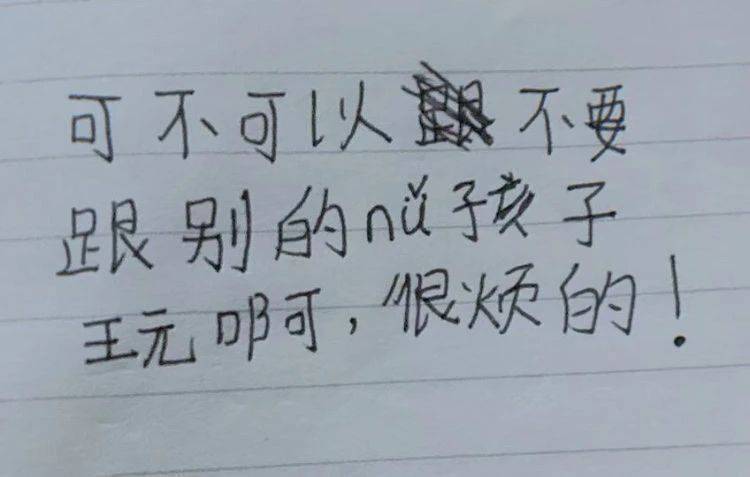 可不可以不要
跟别的nǚ孩子
王元啊,很烦的!